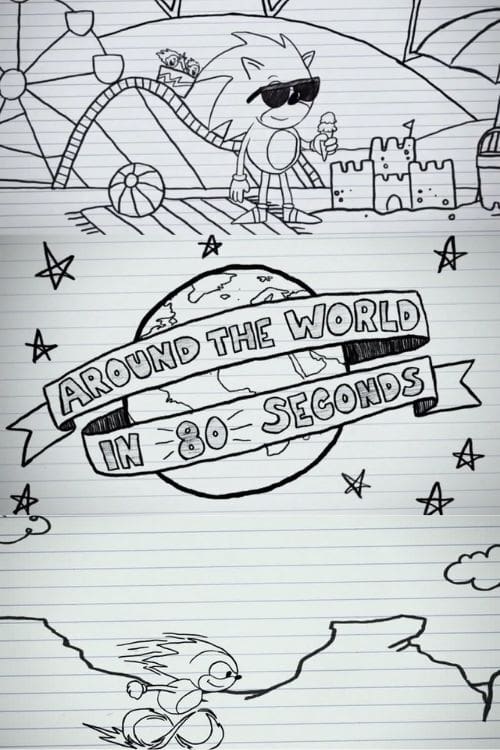 AROUND THE WORLD
IN 80 SECONDS